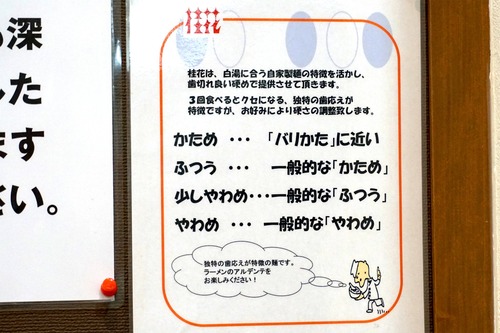 深
した
ます
さい。
桂花
桂花は、白湯に合う自家製麺の特徴を活かし、
歯切れ良い硬めで提供させて頂きます。
３回食べるとクセになる、独特の歯応えが
特徴ですが、お好みにより硬さの調整致します。
かため ・・・ 「バリかた」に近い
ふつう ・・・ 一般的な「かため」
少しやわめ・・・一般的な「ふつう」
やわめ ・・・ 一般的な「やわめ」
独特の歯応えが特徴の麺です。
ラーメンのアルデンテを
お楽しみください！